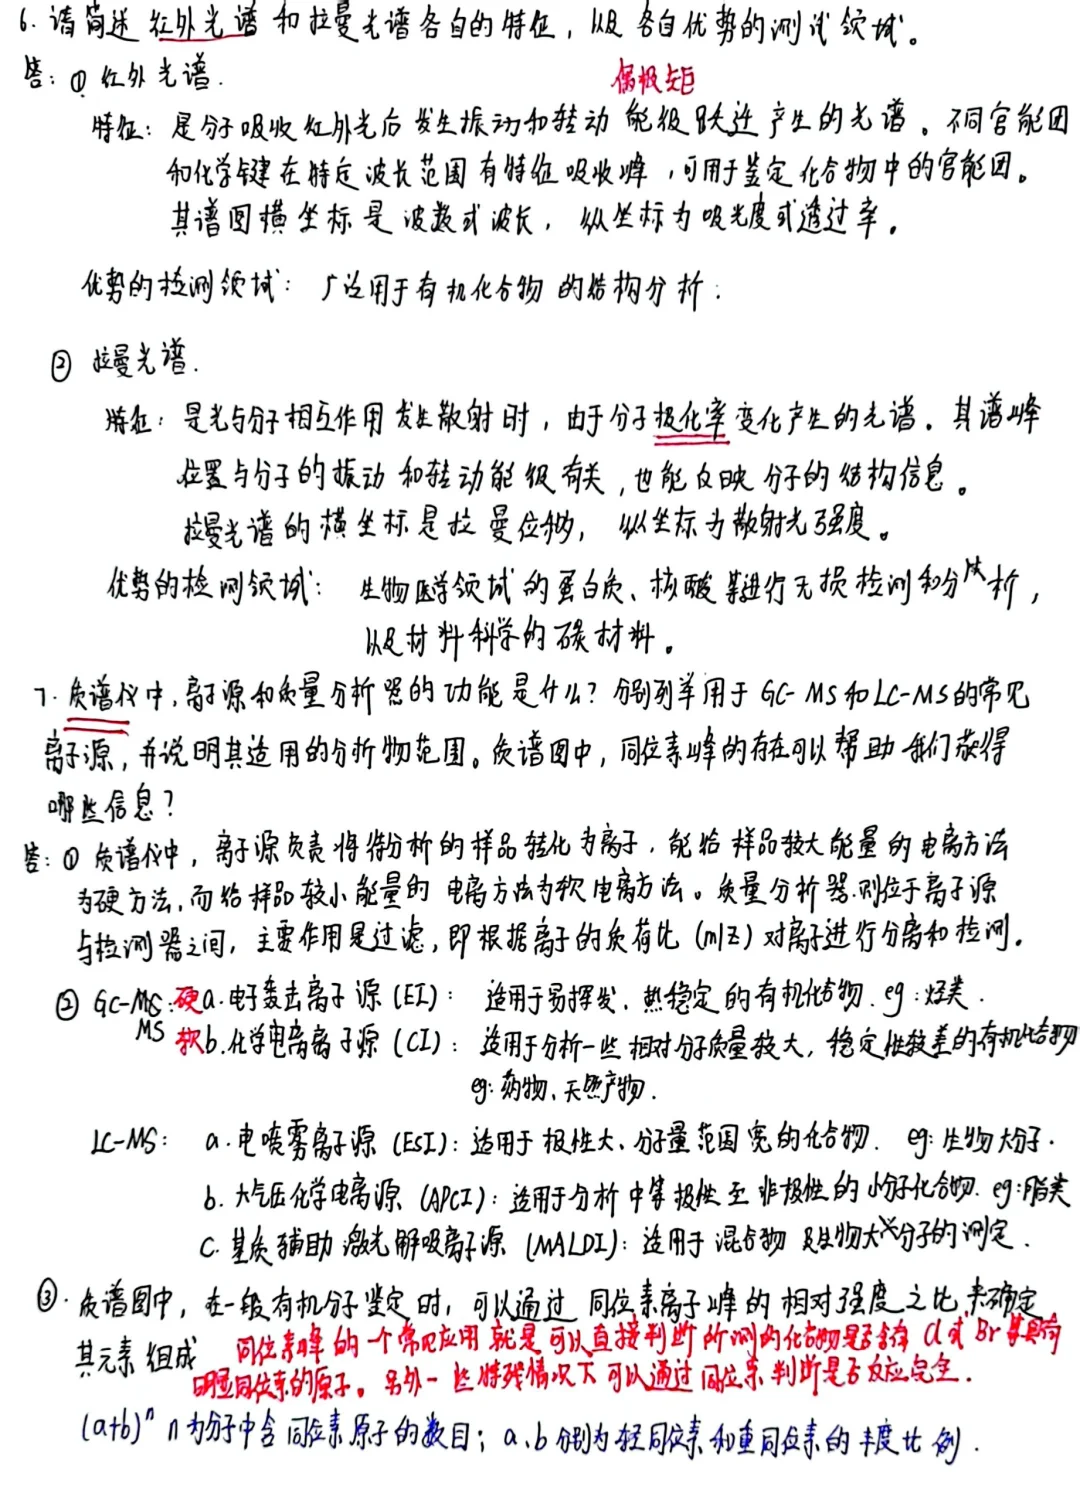 6. 请简述红外光谱和拉曼光谱各自的特征，以及各自优势的测试领域。
答：① 红外光谱.
偶极矩
特征：是分子吸收红外光后发生振动和转动能级跃迁产生的光谱。不同官能团
和化学键在特定波长范围有特征吸收峰，可用于鉴定化合物中的官能团。
其谱图横坐标是波数或波长，纵坐标为吸光度或透过率。
优势的检测领域：广泛用于有机化合物的结构分析.
② 拉曼光谱.
特征：是光与分子相互作用发生散射时，由于分子极化率变化产生的光谱。其谱峰
位置与分子的振动和转动能级有关，也能反映分子的结构信息。
拉曼光谱的横坐标是拉曼位移，纵坐标为散射光强度。
优势的检测领域：生物医学领域的蛋白质、核酸等进行无损检测和分析，
以及材料科学的碳材料。
7. 质谱仪中，离子源和质量分析器的功能是什么？分别列举用于GC-MS和LC-MS的常见
离子源，并说明其适用的分析物范围。质谱图中，同位素峰的存在可以帮助我们获得
哪些信息？
答：① 质谱仪中，离子源负责将待分析的样品转化为离子，能给样品较大能量的电离方法
为硬方法，而给样品较小能量的电离方法为软电离方法。质量分析器则位于离子源
与检测器之间，主要作用是过滤，即根据离子的质荷比(m/z)对离子进行分离和检测。
② GC-MS：硬a.电子轰击离子源(EI)：适用于易挥发、热稳定的有机化合物.eg:烃类.
MS 软b.化学电离离子源(CI)：适用于分析一些相对分子质量较大，稳定性较差的有机化合物
eg:药物、天然产物.
LC-MS：a.电喷雾离子源(ESI)：适用于极性大、分子量范围宽的化合物. eg:生物大分子.
b.大气压化学电离源(APCI)：适用于分析中等极性至非极性的小分子化合物. eg:脂类
C.基质辅助激光解吸离子源(MALDI)：适用于混合物及生物大分子的测定.
③.质谱图中，在一般有机分子鉴定时，可以通过同位素离子峰的相对强度之比来确定
其元素组成 同位素峰的一个常见应用就是可以直接判断所测的化合物是否含有Cl或Br等具有
明显同位素的原子。另外一些特殊情况下可以通过同位素判断是否反应完全.
(a+b)ⁿ n为分子中含同位素原子的数目；a、b分别为轻同位素和重同位素的丰度比例.